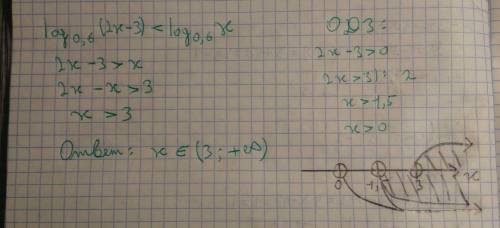 log₀,₆(2x-3) < log₀,₆x
2x-3>x
2x-x>3
x>3
Ответ: x ∈ (3; +∞)
ОДЗ:
2x-3>0
2x>3|: 2
x>1,5
x>0
0 1,5 3 x